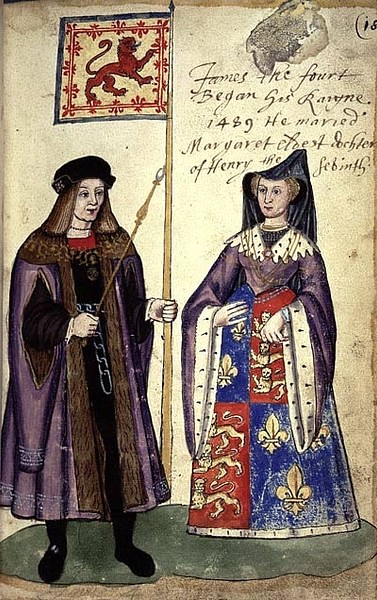 (18
James the fourt
Began his Rayne
1489 He maried
Margaret eldest dochter
of Henry the sebinth